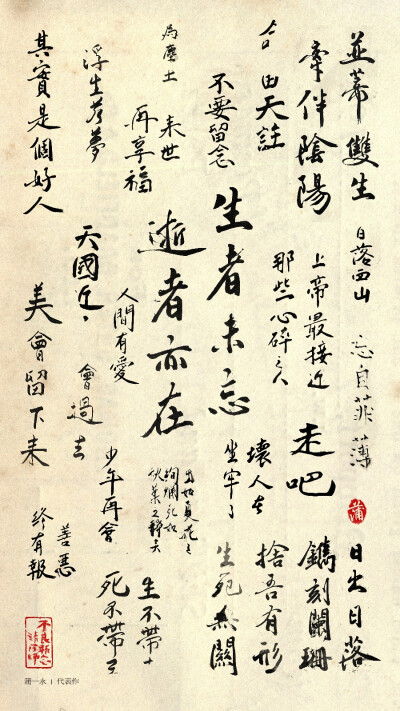 並蒂雙生
日落西山
忘自菲薄
蒲
日出日落
牽伴陰陽
上帝最接近
那些心碎之人
走吧
鐫刻闌珊
合
由天註
壞人去
坐牢了
捨吾有形
不要留念
生者未忘
生死無關
為塵土
來世
再享福
逝者亦在
生如夏花之
絢爛死如
秋葉之靜美
生不帶
死不帶
浮生若夢
人間有愛
會過去
少年再會
天國近
善惡
終有報
其實是個好人
美會留下來
蒲一永 | 代表作